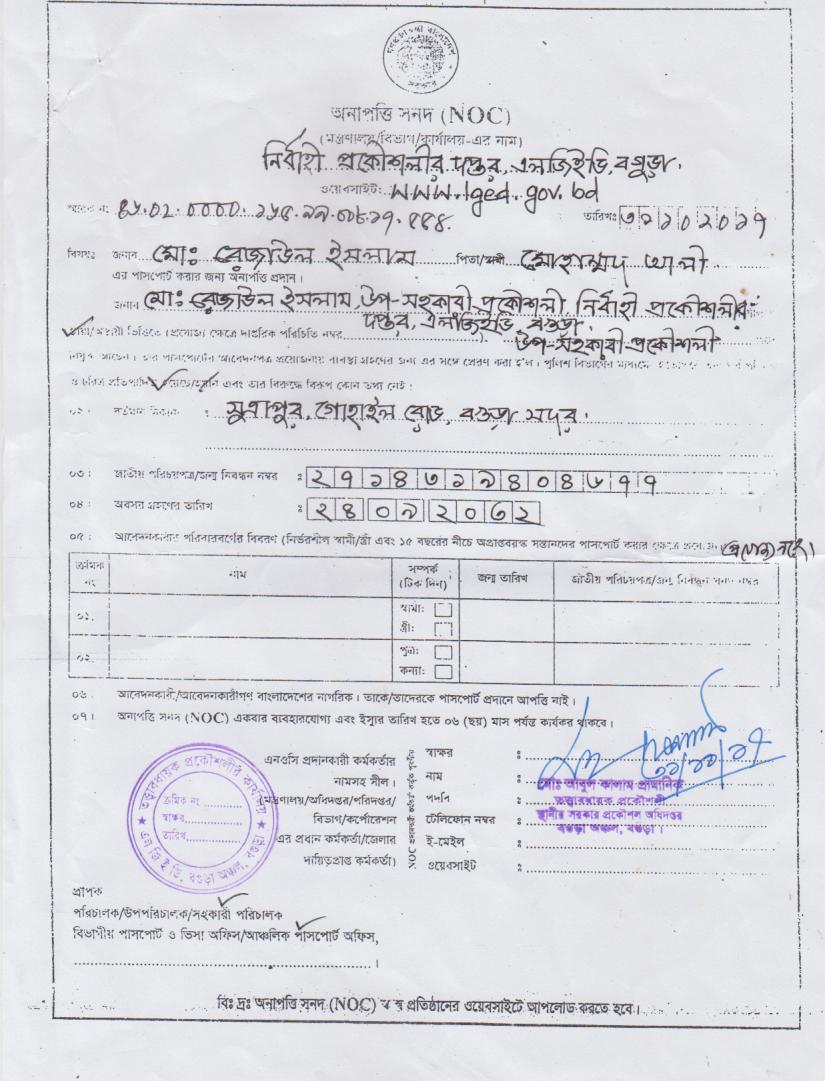 অনাপত্তি সনদ (NOC)
(মন্ত্রণালয়/বিভাগ/কার্যালয়-এর নাম)
নির্বাহী প্রকৌশলীর দপ্তর, এলজিইডি, বগুড়া.
ওয়েবসাইট: www.lged.gov.bd
স্মারক নং
তারিখঃ
বিষয়ঃ জনাব মোঃ রেজাউল ইসলাম পিতা/স্বামী মোহাম্মদ আলী
এর পাসপোর্ট করার জন্য অনাপত্তি প্রদান।
জনাব মোঃ রেজাউল ইসলাম, উপ-সহকারী প্রকৌশলী, নির্বাহী প্রকৌশলীর
দপ্তর, এলজিইডি, বগুড়া.
স্থায়ী/অস্থায়ী ভিত্তিতে (প্রযোজ্য ক্ষেত্রে দাপ্তরিক পরিচিতি নম্বর উপ-সহকারী প্রকৌশলী
নিযুক্ত আছেন। তার পাসপোর্টের আবেদনপত্র প্রয়োজনীয় ব্যবস্থা গ্রহণের জন্য এর সঙ্গে প্রেরণ করা হ'ল। পুলিশ বিভাগের মাধ্যমে
এবং তার বিরুদ্ধে বিরূপ কোন তথ্য নেই:
০২। : সুত্রাপুর, গোহাইল রোড, বগুড়া সদর.
০৩। জাতীয় পরিচয়পত্র/জন্ম নিবন্ধন নম্বর :
০৪। অবসর গ্রহণের তারিখ : ২৪০৯২০৩২
০৫। আবেদনকারীর পরিবারবর্গের বিবরণ (নির্ভরশীল স্বামী/স্ত্রী এবং ১৫ বছরের নীচে অপ্রাপ্তবয়স্ক সন্তানদের পাসপোর্ট করার ক্ষেত্রে প্রযোজ্য) (প্রযোজ্য নহে)
ক্রমিক নং নাম সম্পর্ক (টিক দিন) জন্ম তারিখ জাতীয় পরিচয়পত্র/জন্ম নিবন্ধন সনদ নম্বর
০১. স্বামী:
স্ত্রী:
০২. পুত্র:
কন্যা:
০৬. আবেদনকারী/আবেদনকারীগণ বাংলাদেশের নাগরিক। তাকে/তাদেরকে পাসপোর্ট প্রদানে আপত্তি নাই।
০৭। অনাপত্তি সনদ (NOC) একবার ব্যবহারযোগ্য এবং ইস্যুর তারিখ হতে ০৬ (ছয়) মাস পর্যন্ত কার্যকর থাকবে।
তত্ত্বাবধায়ক প্রকৌশলীর কার্যালয়
ক্রমিক নং
স্বাক্ষর
তারিখ
এল জি ই ডি, বগুড়া অঞ্চল, বগুড়া
এনওসি প্রদানকারী কর্মকর্তার
নামসহ সীল।
(মন্ত্রণালয়/অধিদপ্তর/পরিদপ্তর/
বিভাগ/কর্পোরেশন
এর প্রধান কর্মকর্তা/জেলার
দায়িত্বপ্রাপ্ত কর্মকর্তা)
স্বাক্ষর :
নাম : মোঃ আবুল কালাম প্রামানিক
পদবি : তত্ত্বাবধায়ক প্রকৌশলী
টেলিফোন নম্বর : স্থানীয় সরকার প্রকৌশল অধিদপ্তর
ই-মেইল : বগুড়া অঞ্চল, বগুড়া।
ওয়েবসাইট :
প্রাপক
পরিচালক/উপপরিচালক/সহকারী পরিচালক
বিভাগীয় পাসপোর্ট ও ভিসা অফিস/আঞ্চলিক পাসপোর্ট অফিস,
বিঃ দ্রঃ অনাপত্তি সনদ (NOC) স্ব স্ব প্রতিষ্ঠানের ওয়েবসাইটে আপলোড করতে হবে।